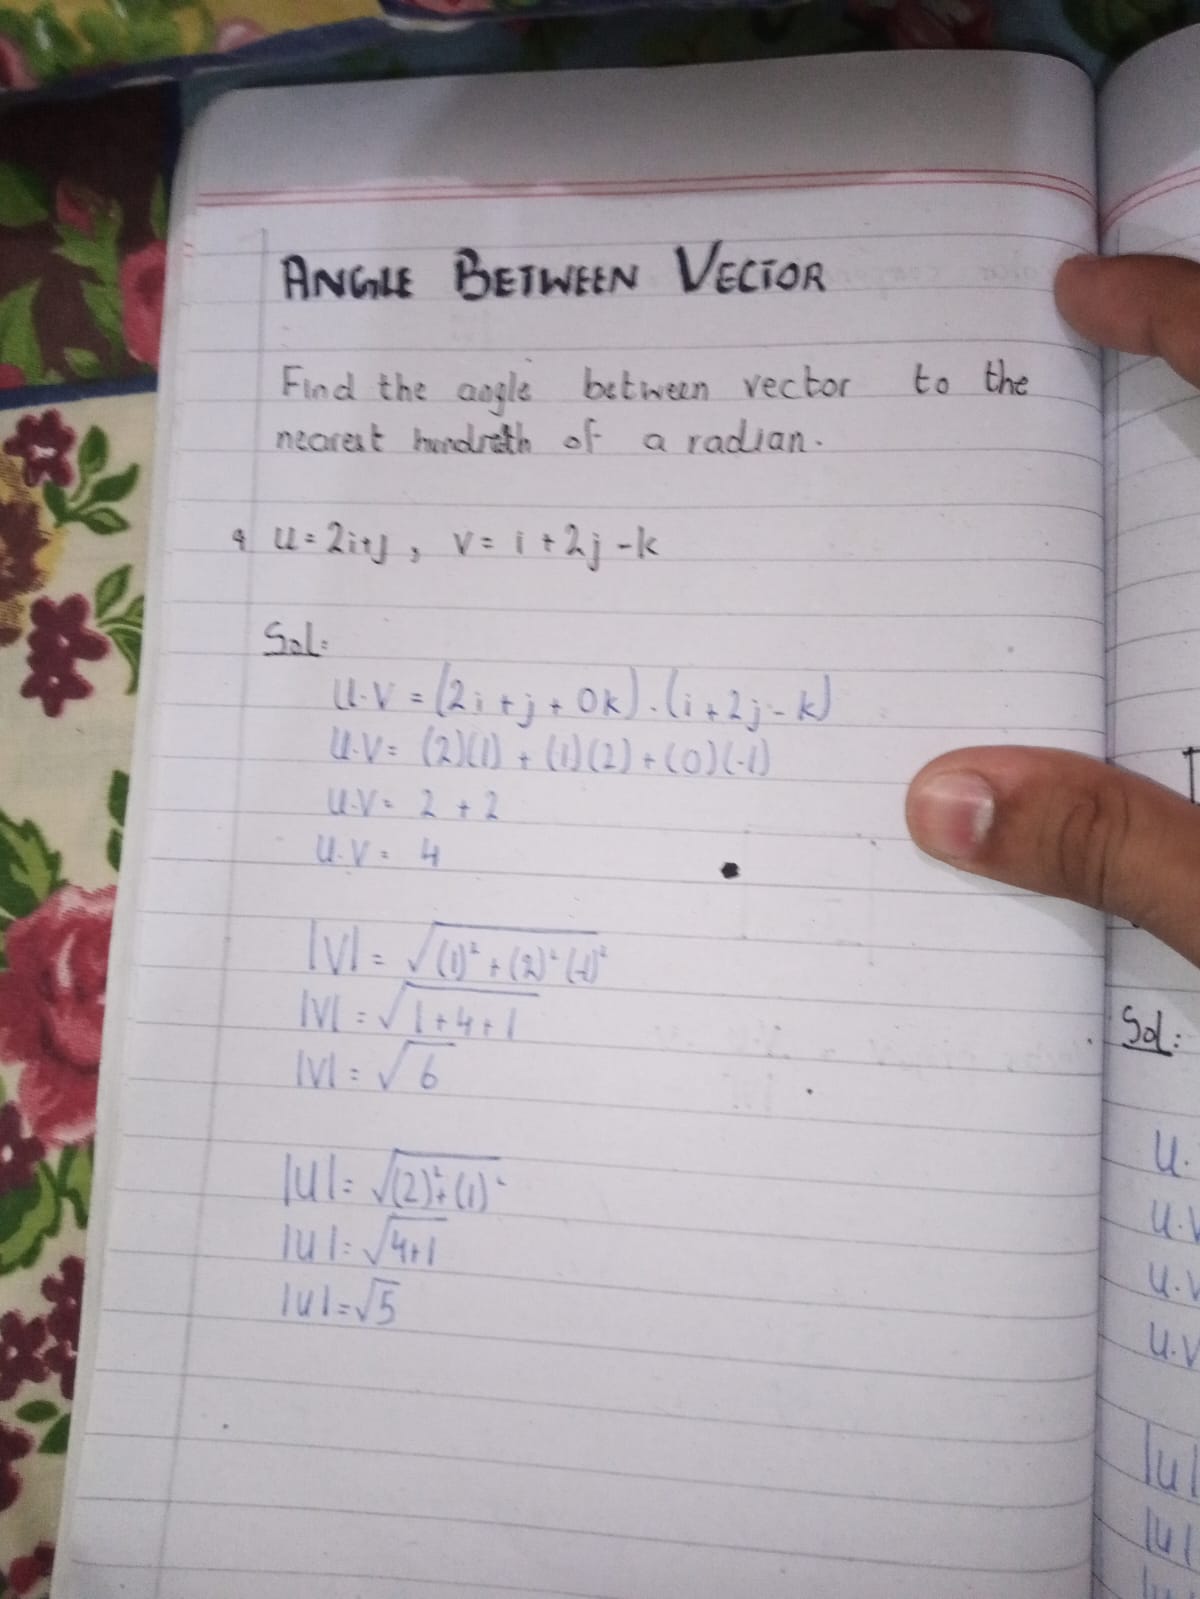 ANGLE BETWEEN VECTOR
Find the angle between vector to the
nearest hundreth of a radian.
9 u = 2i+j , v = i + 2j - k
Sol:
u.v = (2i + j + 0k) . (i + 2j - k)
u.v = (2)(1) + (1)(2) + (0)(-1)
u.v = 2 + 2
u.v = 4
|v| = √(1)² + (2)² (-1)²
|v| = √1+4+1
|v| = √6
|u| = √(2)²+(1)²
|u| = √4+1
|u| = √5
Sol:
u.
u.v
u.v
u.v
|u|
|u|